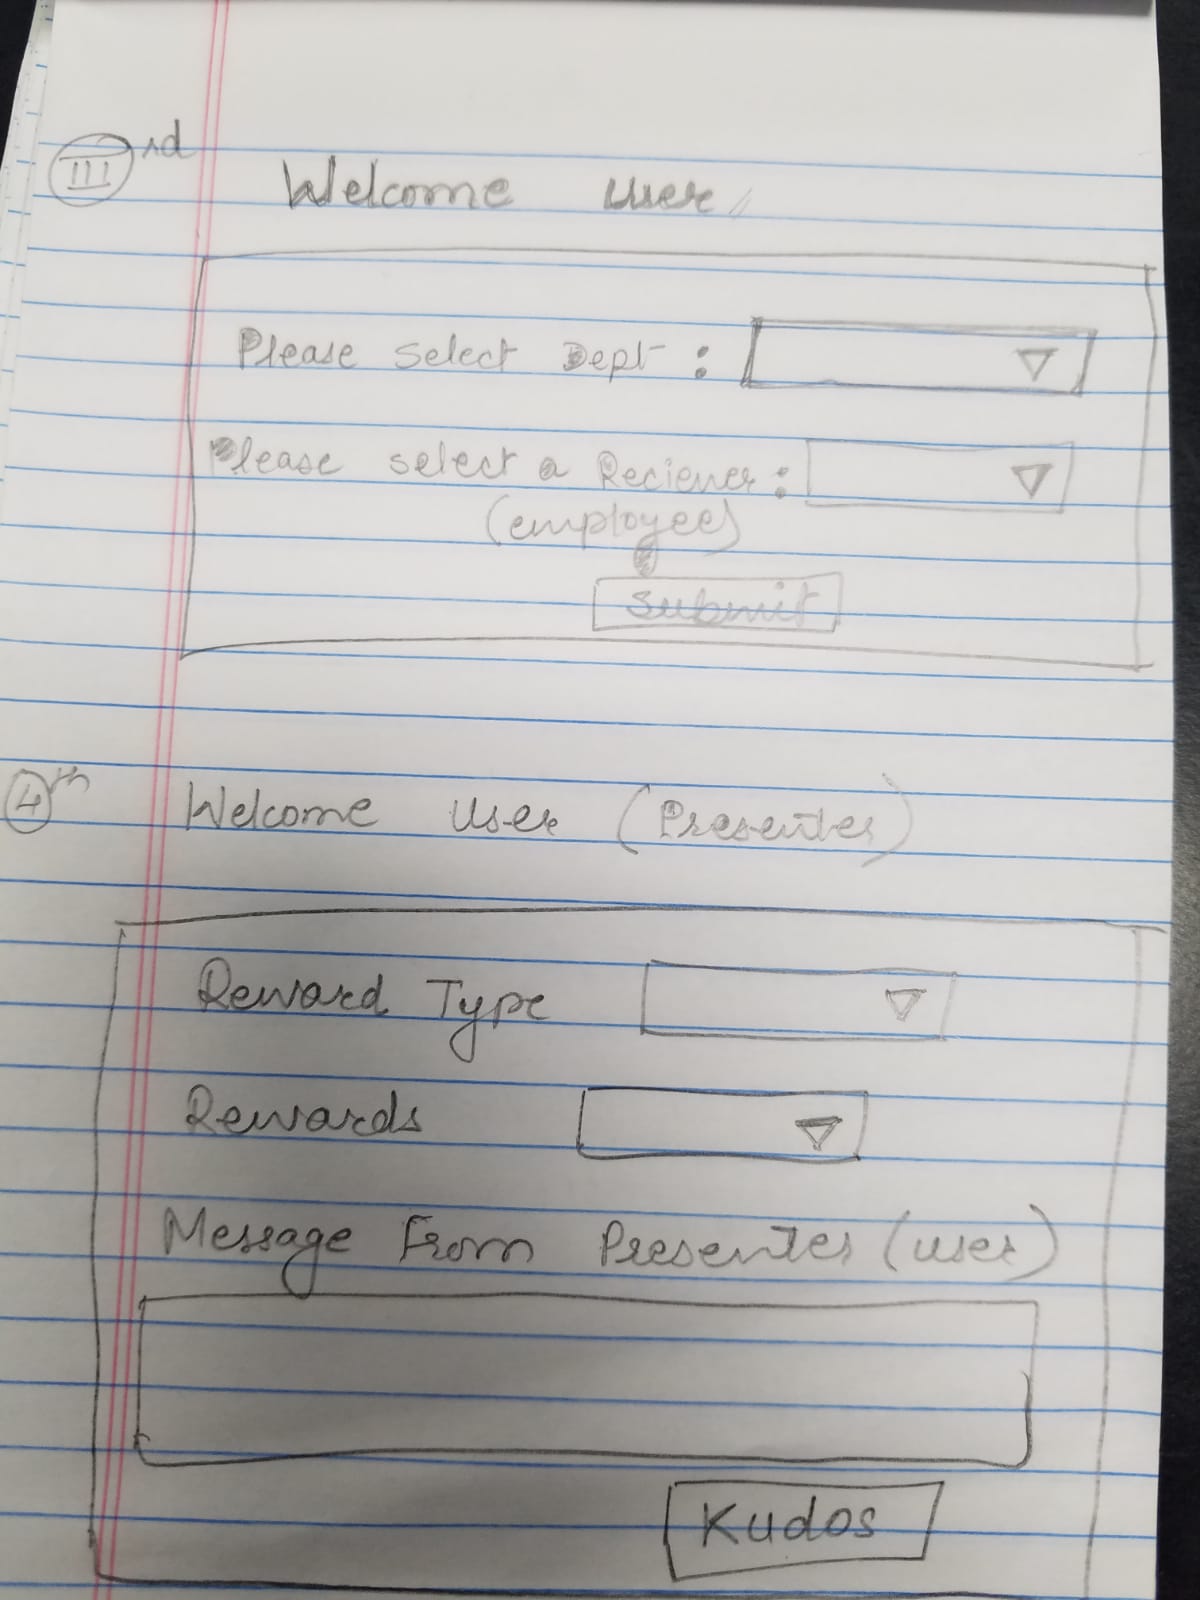 III rd
Welcome User
Please select Dept :
Please select a Reciever :
(employee)
Submit
4th
Welcome User (Presenter)
Reward Type
Rewards
Message From Presenter (user)
Kudos